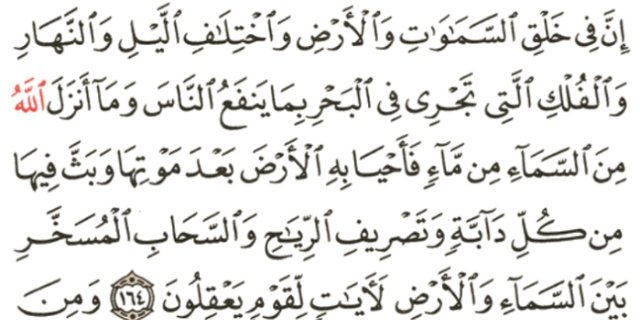 إِنَّ فِى خَلْقِ ٱلسَّمَٰوَٰتِ وَٱلْأَرْضِ وَٱخْتِلَٰفِ ٱلَّيْلِ وَٱلنَّهَارِ
وَٱلْفُلْكِ ٱلَّتِى تَجْرِى فِى ٱلْبَحْرِ بِمَا يَنفَعُ ٱلنَّاسَ وَمَآ أَنزَلَ ٱللَّهُ
مِنَ ٱلسَّمَآءِ مِن مَّآءٍ فَأَحْيَا بِهِ ٱلْأَرْضَ بَعْدَ مَوْتِهَا وَبَثَّ فِيهَا
مِن كُلِّ دَآبَّةٍ وَتَصْرِيفِ ٱلرِّيَٰحِ وَٱلسَّحَابِ ٱلْمُسَخَّرِ
بَيْنَ ٱلسَّمَآءِ وَٱلْأَرْضِ لَءَايَٰتٍ لِّقَوْمٍ يَعْقِلُونَ ١٦٤ وَمِنَ